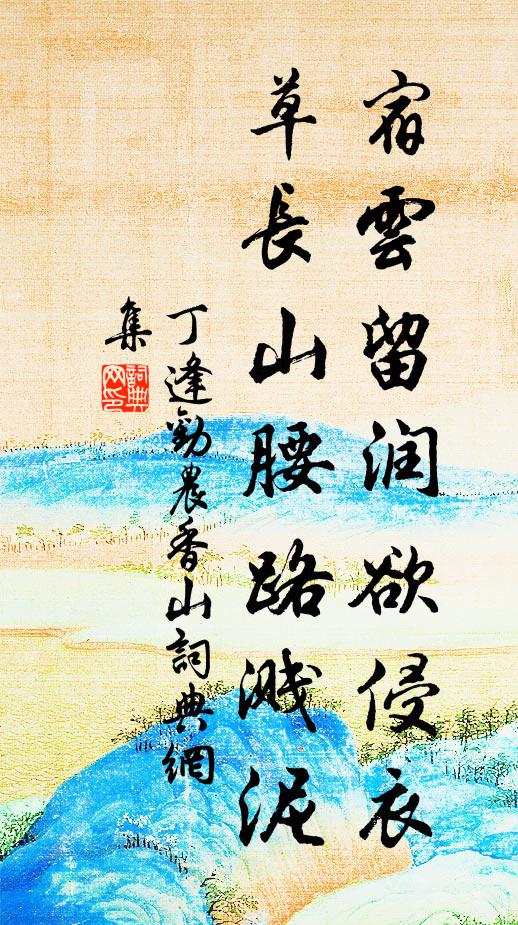 宿雲留润欲侵衣
草長山腰路溅泥
丁逢勸農香山詞典網
集
詞典网印